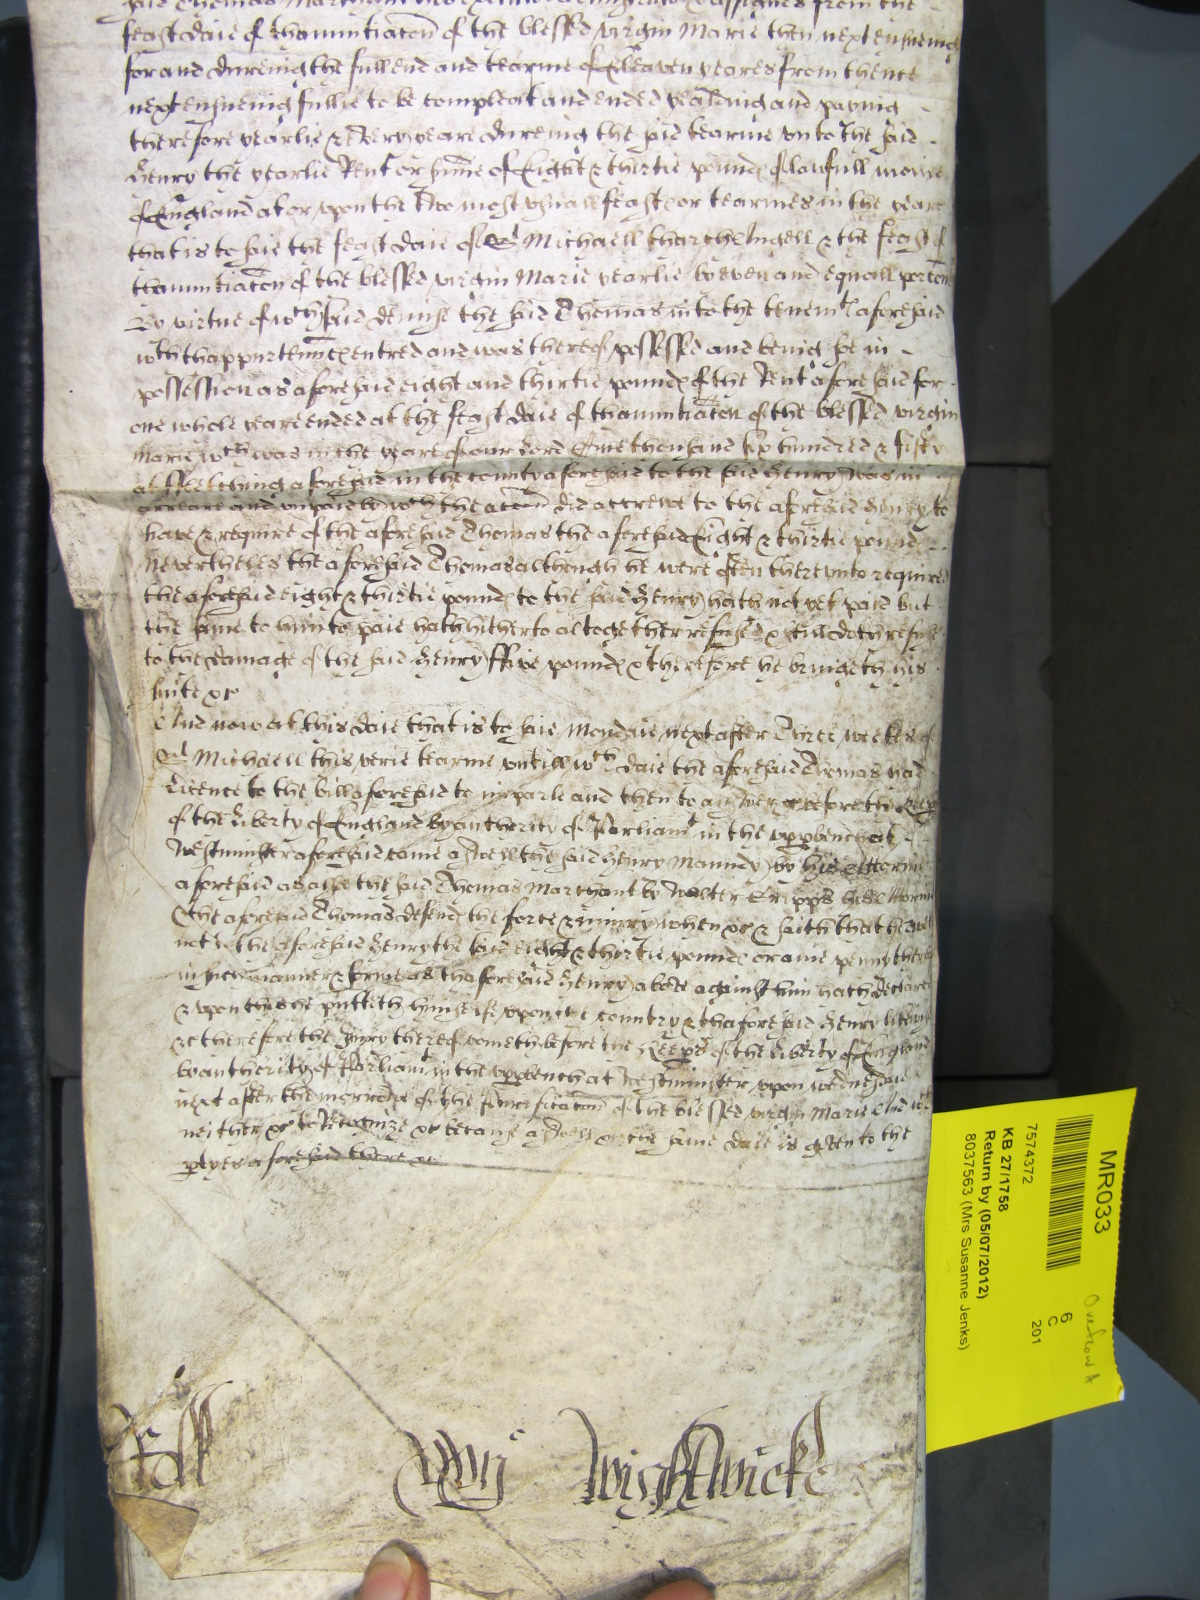 said Thomas Marchant his executors administrators & assignes from the
feast daie of thannuntiacon of the blessed virgin Marie then next ensueing
for and dureing the full end and tearme of Eleaven yeares from thence
next ensueing fullie to be compleat and ended yealding and paying
therefore yearlie & every yeare dureing the said tearme unto the said
Henry the yearlie Rent or summe of Eight & thirtie pounds of lawfull monie
of England at or upon the two most usuall feasts or tearmes in the yeare
that is to saie the feast daie of St Michaell tharchangell & the feast of
thannuntiacon of the blessed virgin Marie yearlie by even and equall porcons
By virtue of wch said demise the said Thomas into the tenemts aforesaid
wth thappurtennces entred and was thereof possessed and being soe in
possession as aforesaid eight and thirtie pounds of the Rent aforesaid for
one whole yeare ended at the feast daie of thannuntiacon of the blessed virgin
Marie wch was in the yeare of our Lord One thousand six hundred & fifty
at ffletching aforesaid in the county aforesaid to the said Henry was in
arreare and unpaid by wch the accon did accrewe to the aforesaid Henry to
have & require of the aforesaid Thomas the aforesaid Eight & thirtie pounds
Neverthelesse the aforesaid Thomas although he were often thereunto required
the aforesaid eight & thirtie pounds to the said Henry hath not yet paid but
the same to him to paie hath hitherto altogether refused & still doth refuse
to the damage of the said Henry ffive pounds & therefore he bringeth his
suite &c
And now at this daie that is to saie Mondaie next after Three weekes of
St Michaell this verie tearme untill wch daie the aforesaid Thomas had
Licence to the bill aforesaid to imparle and then to answer &c before the Keeps
of the Liberty of England by authority of Parliamt in the upp bench at
Westminster aforesaid came aswell the said Henry Maundy by his Attorney
aforesaid as also the said Thomas Marchant by Walter Cripps his Attorney
& the aforesaid Thomas defends the force & iniury when &c & saith that he oweth
not to the aforesaid Henry the said eight & thirtie pounds or anie penny thereof
in such manner & forme as thaforesaid Henry above against him hath declared
& upon this he putteth himselfe upon the country & thaforesaid Henry likewise
&c therefore the Jury thereof cometh before the Keeps of the Liberty of England
by authority of Parliamt in the upp bench at Westminster upon wednesdaie
next after the morrowe of the Purificacon of the blessed virgin Marie And wch
neither &c to Recognize &c because aswell &c the same daie is given to the
ptyes aforesaid there &c
Wightwicke
MR033
7574372
KB 27/1758
Return by (05/07/2012)
8037563 (Mrs Susanne Jenks)
6
C
201